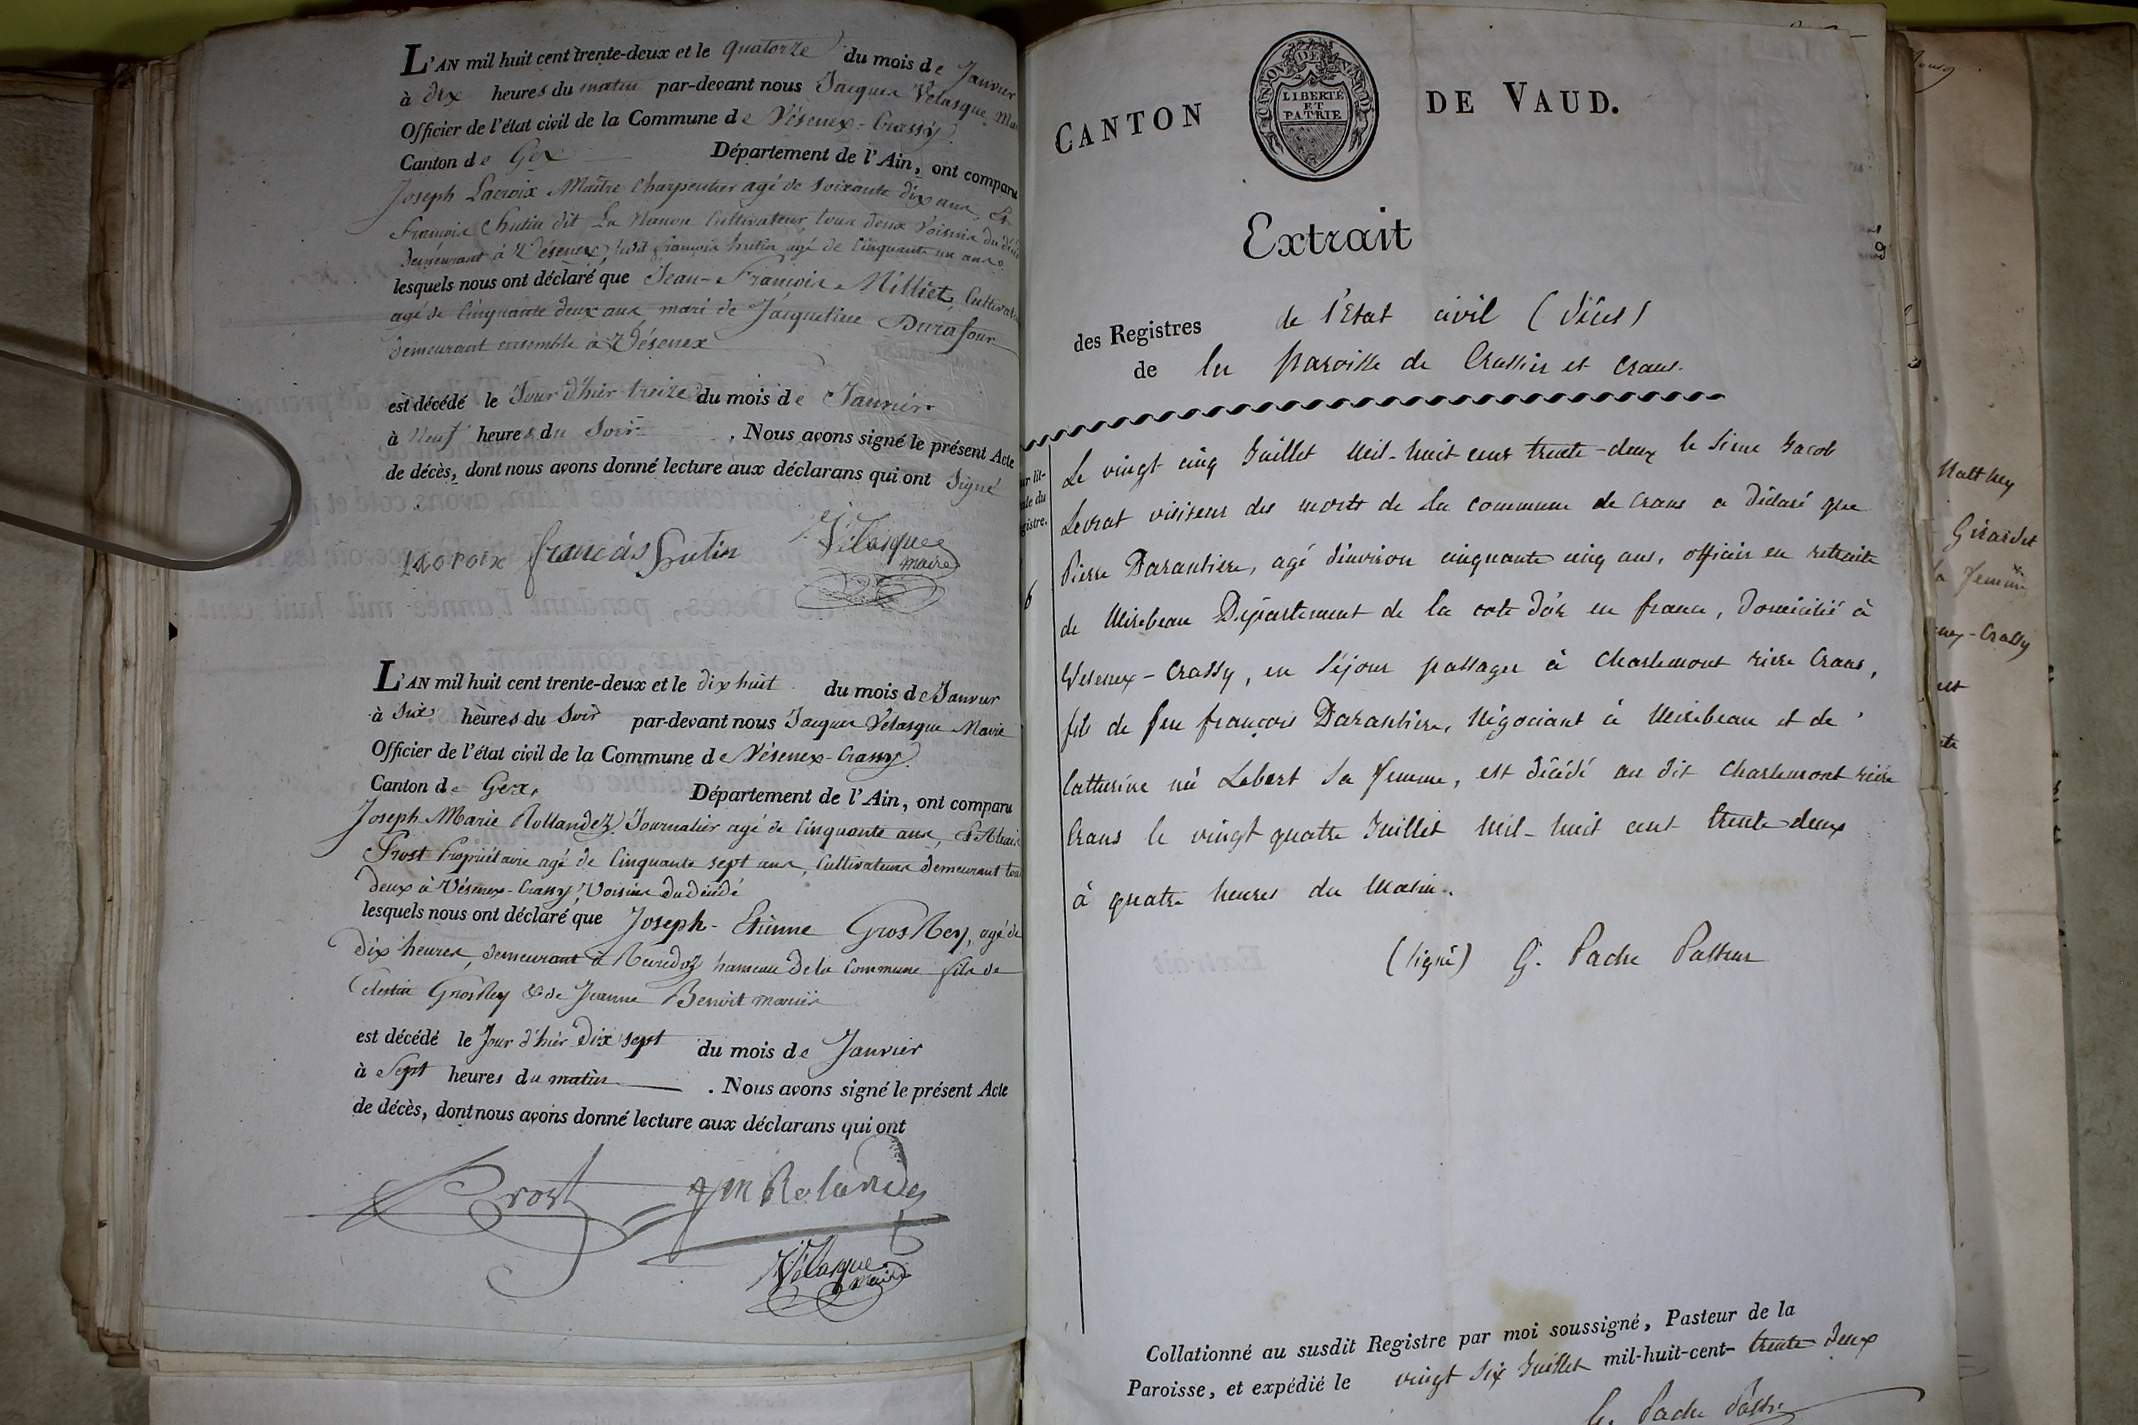 L'AN mil huit cent trente-deux et le quatorze du mois de Janvier
à dix heures du matin par-devant nous Jacques Vélasque Mai
Officier de l'état civil de la Commune de Vésenex-Crassy
Canton de Gex Département de l'Ain, ont comparu
Joseph Lacroix Maître Charpentier agé de soixante dix ans, Et
François hutin dit La Nanou Cultivateur, tous deux Voisins du
demeurant à Vésenex, ledit françois hutin agé de Cinquante un ans
lesquels nous ont déclaré que Jean-François Milliet, Cultivat
agé de Cinquante deux ans, mari de Jacqueline Durafour
demeurant ensemble à Vésenex
est décédé le Jour d'hier treize du mois de Janvier
à Neuf heures du Soir . Nous avons signé le présent Acte
de décès, dont nous avons donné lecture aux déclarans qui ont signé
Lacroix françois hutin Vélasque
maire
L'AN mil huit cent trente-deux et le dix huit du mois de Janvier
à Six heures du Soir par-devant nous Jacques Vélasque Maire
Officier de l'état civil de la Commune de Vésenex-Crassy.
Canton de Gex, Département de l'Ain, ont comparu
Joseph Marie Rollandez Journalier agé de Cinquante ans, &
Prost Propriétaire agé de Cinquante sept ans, Cultivateurs demeurant tous
deux à Vésenex-Crassy, Voisins du décédé
lesquels nous ont déclaré que Joseph-Etienne GrosRey, agé de
dix heures, demeurant à hameau de la Commune fils de
Celestin GrosRey & de Jeanne Benoit mariés
est décédé le Jour d'hier Dix sept du mois de Janvier
à Sept heures du matin . Nous avons signé le présent Acte
de décès, dont nous avons donné lecture aux déclarans qui ont
Prost JM Rolandez
Vélasque
maire
CANTON DE VAUD.
CANTON DE VAUD
LIBERTÉ
ET
PATRIE
Extrait
des Registres de l'Etat civil (Décès)
de la paroisse de Crassier et Crans.
Le vingt cinq Juillet Mil-huit cent trente-deux le Sieur Jacob
Levrat visiteur des morts de la commune de Crans a déclaré que
Pierre Darantiere, agé d'environ cinquante cinq ans, officier en retraite
de Mirebeau Département de la cote d'or en france, Domicilié à
Vesenex-Crassy, en séjour passager à Charlemont riere Crans,
fils de feu françois Darantiere, Négociant à Mirebeau et de
Catherine née Lebert sa femme, est décédé au dit Charlemont riere
Crans le vingt quatre Juillet Mil-huit cent trente deux
à quatre heures du Matin.
(signé) G. Pache Pasteur
Collationné au susdit Registre par moi soussigné, Pasteur de la
Paroisse, et expédié le vingt six Juillet mil-huit-cent- trente deux
G. Pache Pastr
Matthey
Girardet
femme
Crassy